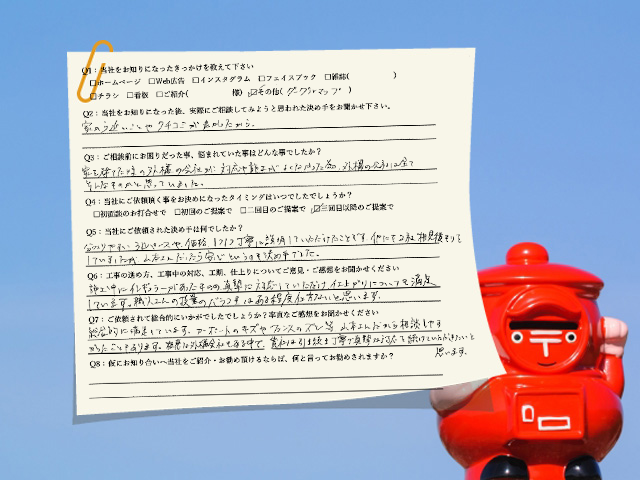 Q1：当社をお知りになったきっかけを教えて下さい
□ホームページ □Web広告 □インスタグラム □フェイスブック □雑誌( )
□チラシ □看板 □ご紹介( 様) ☑その他(グーグルマップ )
Q2：当社をお知りになった後、実際にご相談してみようと思われた決め手をお聞かせ下さい。
家から近いことやクチコミが良かったから。
Q3：ご相談前にお困りだった事、悩まれていた事はどんな事でしたか？
家を建てた時の外構の会社が対応や 、外構の会社は全て
そんなものかと思っていました。
Q4：当社にご依頼頂く事をお決めになったタイミングはいつでしたでしょうか？
□初面談のお打合せで □初回のご提案で □二回目のご提案で ☑三回目以降のご提案で
Q5：当社にご依頼された決め手は何でしたか？
価格 1つ1つ丁寧に説明していただけたことです。他にも2社相見積もりを
していましたが 安心というのも決め手でした。
Q6：工事の進め方、工事中の対応、工期、仕上りについてご意見・ご感想をお聞かせください
施工中にイレギュラーがあったものの真摯に対応していただけ仕上がりについても満足
しています。 ある程度仕方ないと思います。
Q7：ご依頼されて総合的にいかがでしたでしょうか？率直なご感想をお聞かせください
総合的に満足しています。 相談しやす
かったこともあります。 外構会社もある中で、貴社は引き続き丁寧で真摯な対応を続けていただきたいと
思います。
Q8：仮にお知り合いへ当社をご紹介・お勧め頂けるならば、何と言ってお勧めされますか？